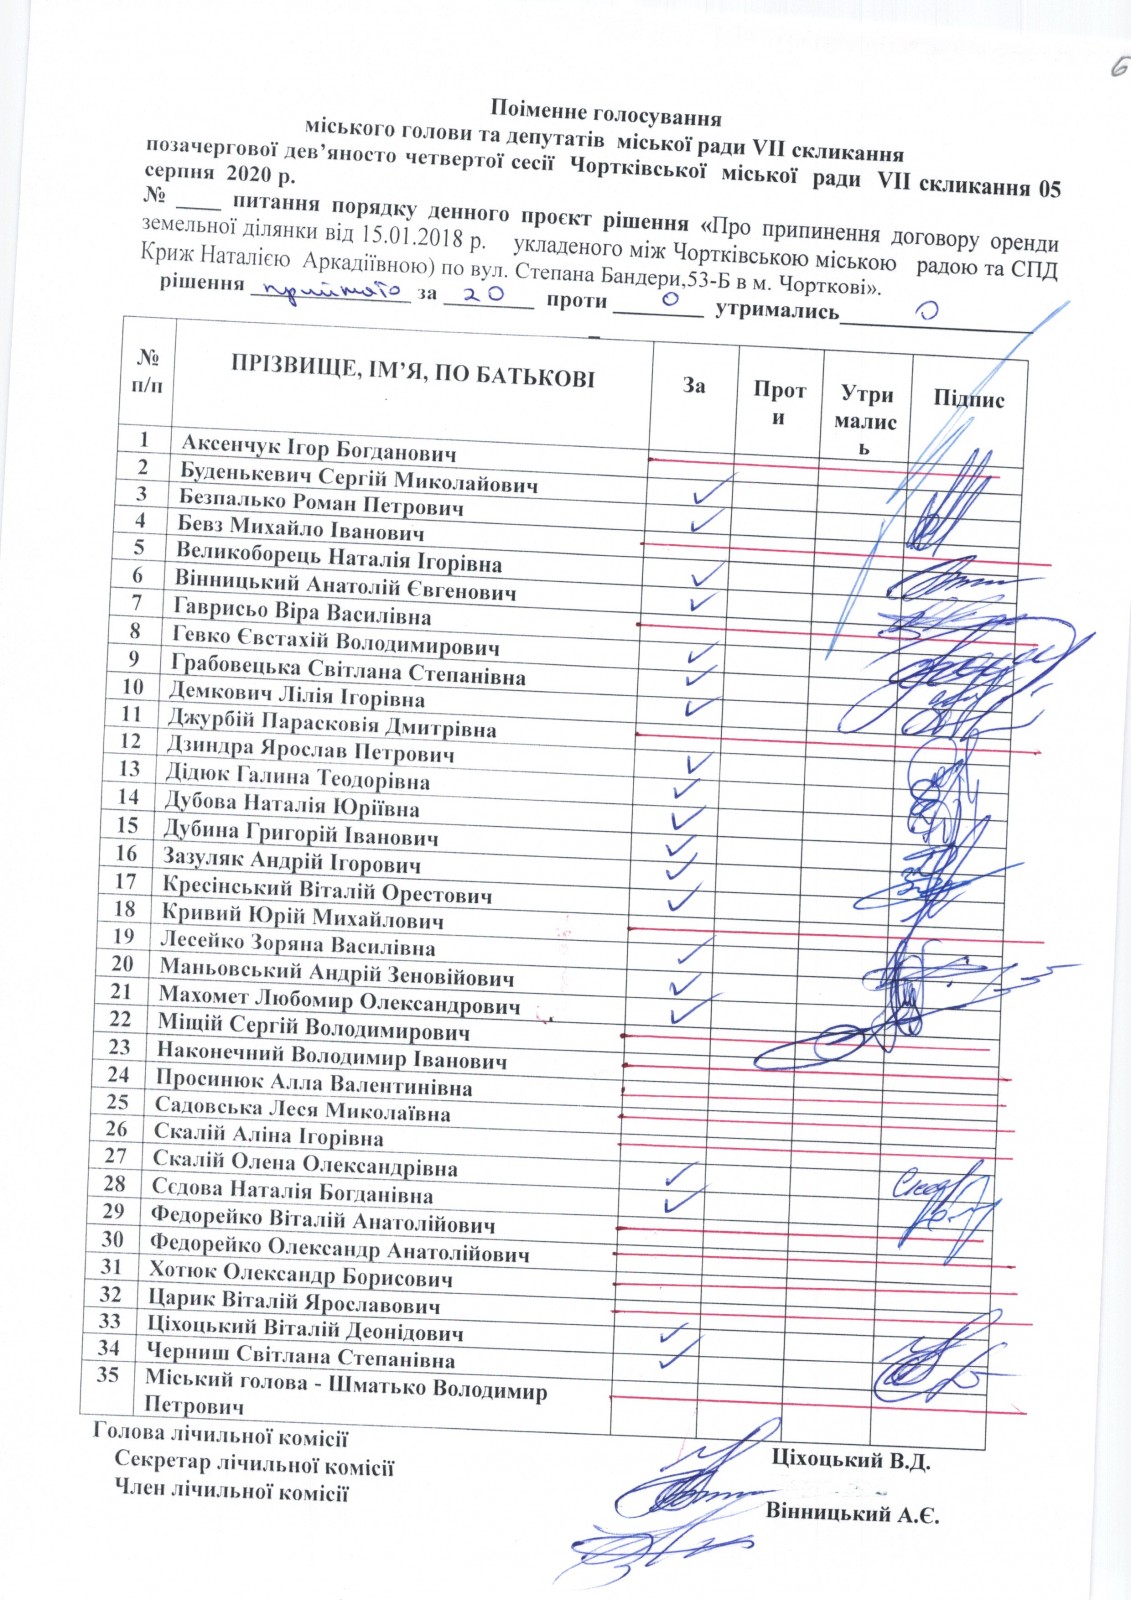 Поіменне голосування
міського голови та депутатів міської ради VII скликання
позачергової дев’яносто четвертої сесії Чортківської міської ради VII скликання 05
серпня 2020 р.
№ ____ питання порядку денного проєкт рішення «Про припинення договору оренди
земельної ділянки від 15.01.2018 р. укладеного між Чортківською міською радою та СПД
Криж Наталією Аркадіївною) по вул. Степана Бандери,53-Б в м. Чорткові».
рішення прийнято за 20 проти 0 утримались 0
№ п/п ПРІЗВИЩЕ, ІМ’Я, ПО БАТЬКОВІ За Проти Утрималися Підпис
1 Аксенчук Ігор Богданович
2 Буденькевич Сергій Миколайович ✓
3 Безпалько Роман Петрович ✓
4 Бевз Михайло Іванович
5 Великоборець Наталія Ігорівна ✓
6 Вінницький Анатолій Євгенович ✓
7 Гаврисьо Віра Василівна
8 Гевко Євстахій Володимирович ✓
9 Грабовецька Світлана Степанівна ✓
10 Демкович Лілія Ігорівна ✓
11 Джурбій Парасковія Дмитрівна
12 Дзиндра Ярослав Петрович ✓
13 Дідюк Галина Теодорівна ✓
14 Дубова Наталія Юріївна ✓
15 Дубина Григорій Іванович ✓
16 Зазуляк Андрій Ігорович ✓
17 Кресінський Віталій Орестович ✓
18 Кривий Юрій Михайлович
19 Лесейко Зоряна Василівна ✓
20 Маньовський Андрій Зеновійович ✓
21 Махомет Любомир Олександрович ✓
22 Міщій Сергій Володимирович
23 Наконечний Володимир Іванович
24 Просинюк Алла Валентинівна
25 Садовська Леся Миколаївна
26 Скалій Аліна Ігорівна
27 Скалій Олена Олександрівна ✓
28 Сєдова Наталія Богданівна ✓
29 Федорейко Віталій Анатолійович
30 Федорейко Олександр Анатолійович
31 Хотюк Олександр Борисович
32 Царик Віталій Ярославович
33 Ціхоцький Віталій Деонідович ✓
34 Черниш Світлана Степанівна ✓
35 Міський голова - Шматько Володимир
Петрович
Голова лічильної комісії Ціхоцький В.Д.
Секретар лічильної комісії
Член лічильної комісії Вінницький А.Є.